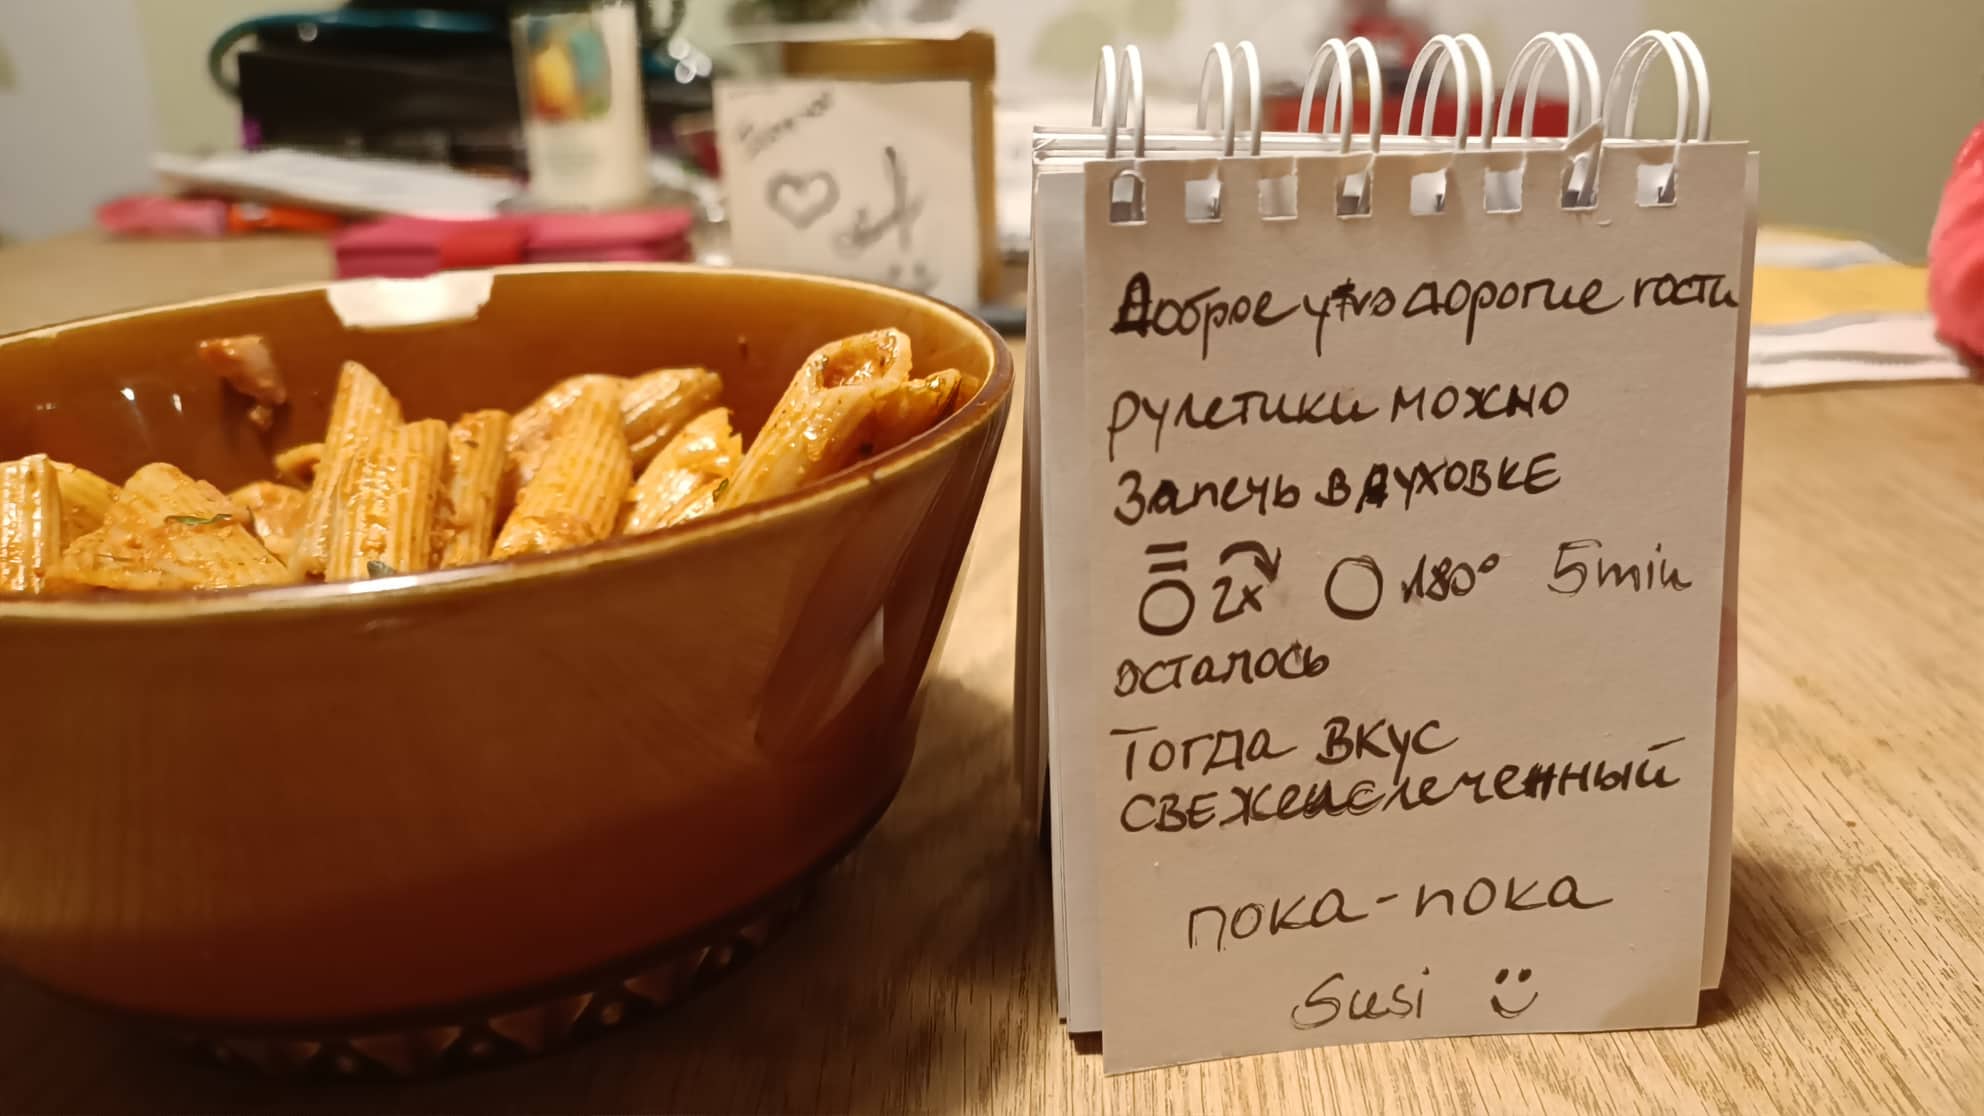 Доброе утро дорогие гости
рулетики можно
запечь в духовке
2x 180° 5min
осталось
Тогда вкус
свежеиспеченный
пока-пока
Susi